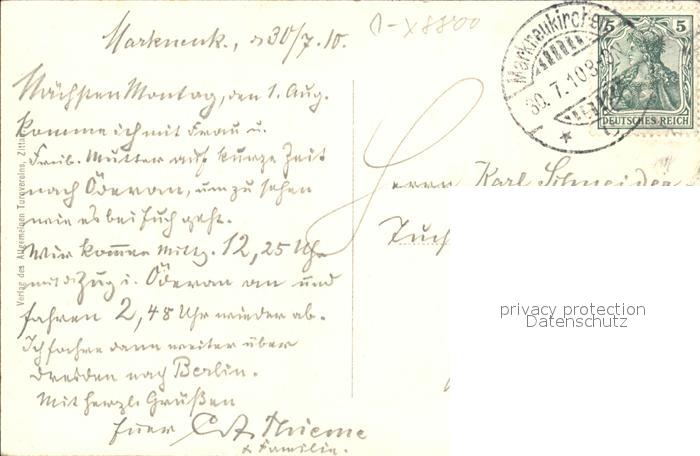 Markneuk., d 30/7. 10.
Nächsten Montag, den 1. Aug.
komme ich mit Frau u.
Freib. Mutter auf kurze Zeit
nach Öderan, um zu sehen
wie es bei Euch geht.
Wir kommen mittg. 12,25 Uhr
mit d. Zug i. Öderan an und
fahren 2,48 Uhr wieder ab.
Ich fahre dann weiter über
Dresden nach Berlin.
Mit herzl. Grüßen
Euer Thieme
& Familie.
Verlag des Allgemeinen Turnvereins, Zittau
Markneukirchen
30. 7. 10 8-9
5 5
DEUTSCHES REICH
Herrn Karl Schneider
Tuch
privacy protection
Datenschutz